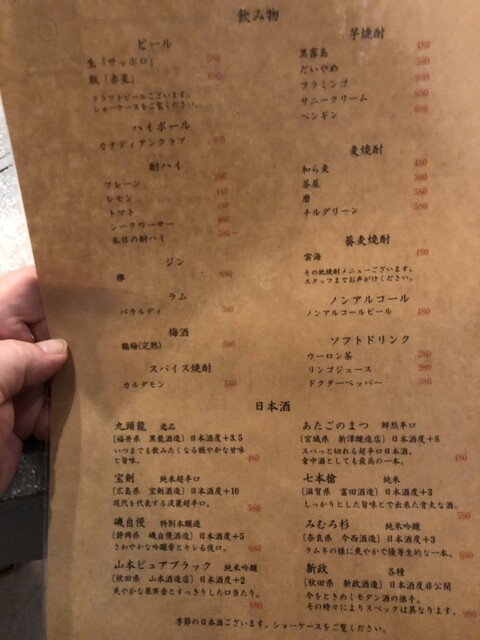 飲み物
ビール
生「サッポロ」
瓶「赤星」
クラフトビールございます。
ショーケースをご覧ください。
ハイボール
カナディアンクラブ
酎ハイ
プレーン
レモン
トマト
シークワーサー
本日の酎ハイ
ジン
ラム
バカルディ 580
梅酒
鶴梅(完熟) 580
スパイス焼酎
カルダモン 580
芋焼酎
黒霧島 480
だいやめ 580
フラミンゴ 580
サニークリーム 580
ペンギン 580
麦焼酎
和ら麦 480
茶屋 580
磨 580
チルグリーン 580
蕎麦焼酎
雲海 480
その他焼酎メニューございます。
スタッフまでお声がけください。
ノンアルコール
ノンアルコールビール 480
ソフトドリンク
ウーロン茶 280
リンゴジュース 380
ドクターペッパー 380
日本酒
九頭龍 逸品
[福井県 黒龍酒造] 日本酒度+3.5
いつまでも飲みたくなる穏やかな甘味
と旨味。 480
宝剣 純米超辛口
[広島県 宝剣酒造] 日本酒度+10
近代を代表する淡麗超辛口。 580
磯自慢 特別本醸造
[静岡県 磯自慢酒造] 日本酒度+5
さわやかな吟醸香とキレる後口。 680
山本ピュアブラック 純米吟醸
[秋田県 山本酒造店] 日本酒度+2
爽やかな果実香とすっきりした口当たり。
680
あたごのまつ 鮮烈辛口
[宮城県 新澤醸造店] 日本酒度+8
スパっと切れる超辛口日本酒。
食中酒としても最高の一本。 480
七本槍 純米
[滋賀県 冨田酒造] 日本酒度+3
しっかりとした旨味とで出来た骨太な酒。
580
みむろ杉 純米吟醸
[奈良県 今西酒造] 日本酒度+3
ラムネの様に爽やかで優等生的な一本。 680
新政 各種
[秋田県 新政酒造] 日本酒度非公開
今をときめくモダン酒の旗手。
その時々によりスペックは異なります。 980
季節の日本酒ございます。ショーケースをご覧ください。